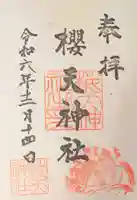 奉拝
櫻天神社
令和六年十二月十四日